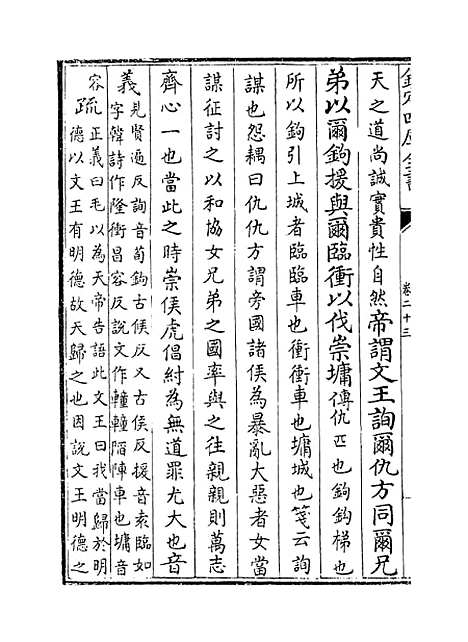 欽定四庫全書
卷二十三
天之道尚誠實貴性自然帝謂文王詢爾仇方同爾兄
弟以爾鉤援與爾臨衝以伐崇墉傳仇匹也鉤鉤梯也
所以鉤引上城者臨臨車也衝衝車也墉城也箋云詢
謀也怨耦曰仇仇方謂旁國諸侯為暴亂大惡者女當
謀征討之以和協女兄弟之國率與之往親親則萬志
齊心一也當此之時崇侯虎倡紂為無道罪尤大也音
義見賢遍反詢音荀鉤古侯反又古侯反援音袁臨如
字韓詩作隆衝昌容反說文作䡴䡴陷陣車也墉音
容疏正義曰毛以為天帝告語此文王曰我當歸於明
德以文王有明德故天歸之也因說文王明德之